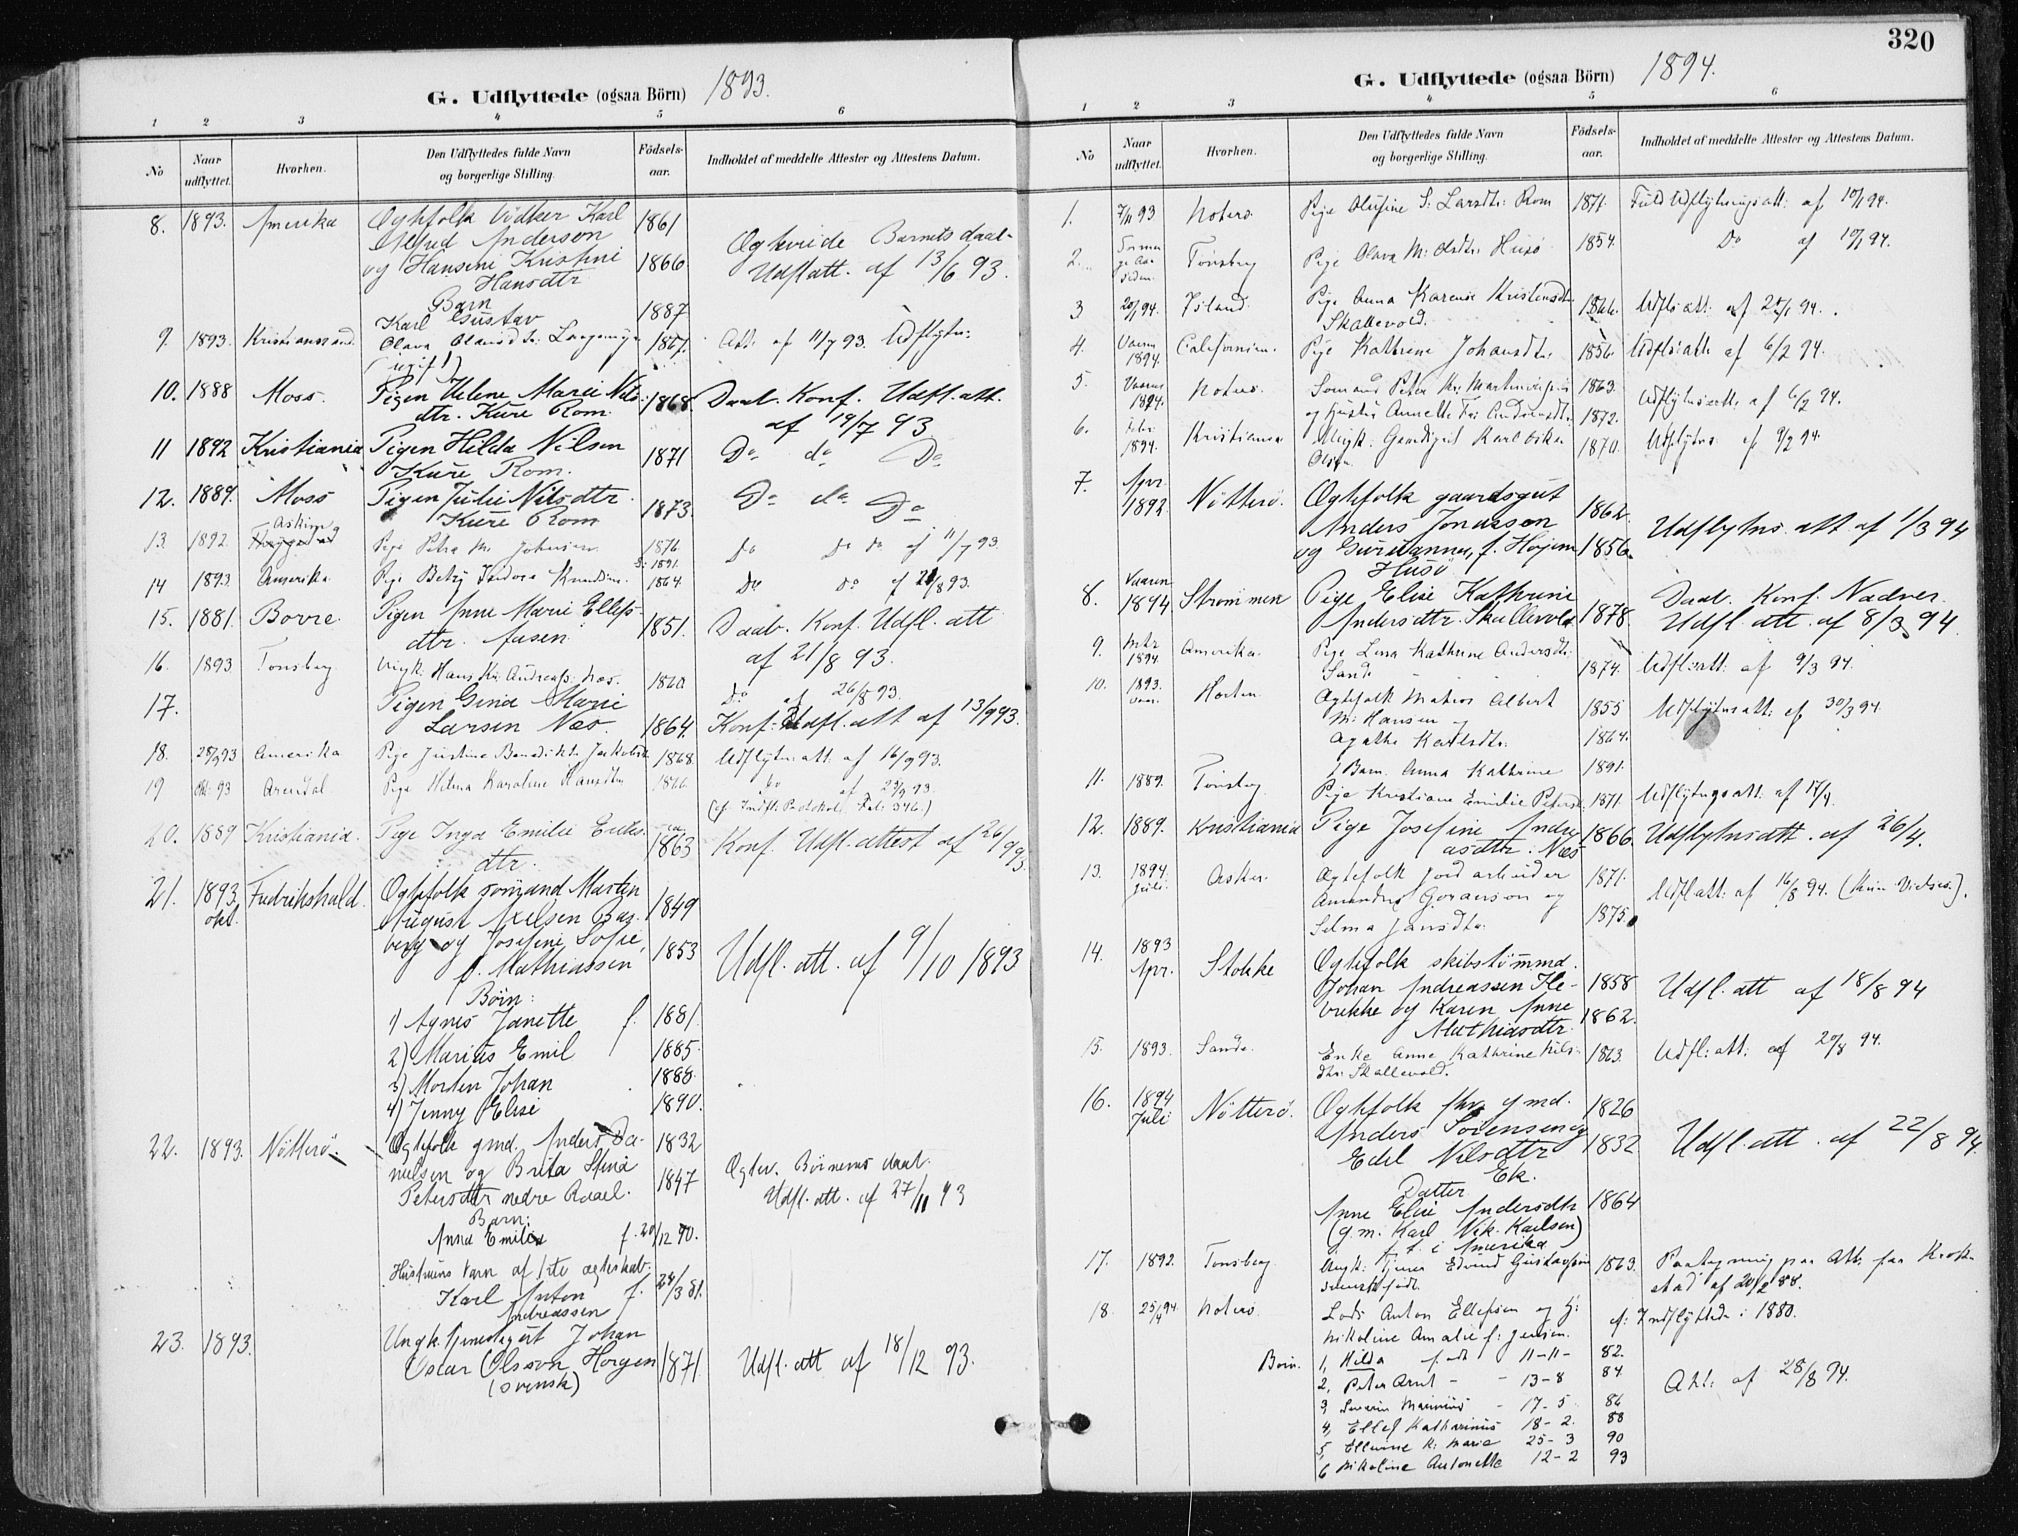 G. Udflyttede (ogsaa Börn) 1893.
1 2 3 4 5 6
No Naar udflyttet. Hvorhen. Den Udflyttedes fulde Navn og borgerlige Stilling. Födsels-aar. Indholdet af meddelte Attester og Attestens Datum.
8. 1893. Amerika Ægtefolk Karl 1861
Alfred Anderson Ægteviede Barnets daab-
og Hansine Kristine 1866 Udfl att. af 13/6 93.
Hansdtr
Barn
Karl Gustav 1887
9. 1893. Kristianssand. Olava Olausdtr. 1867. Att. af 11/7 93. Udflytn:
(ugift)
10. 1888 Moss. Pigen Helene Marie Nils- 1868. Daab. Konf. Udfl. att.
dtr. Kure Rom. af 19/7 93
11 1892 Kristiania Pigen Hilda Nilsen 1871 Do do Do
Kure Rom.
12. 1889. Moss Pigen Julie Nilsdtr. 1873. Do do Do
Kure Rom
Askim
13. 1892. Pige Petra M. Johnsen 1876 do do do af 11/7 93
14 1893. Amerika. Pige Betzy Knudsen. 1864. do do af 21/8 93.
15. 1881. Borre Pigen Anne Marie Ellefs- 1851. Daab. Konf. Udfl. att
dtr. Aasen af 21/8 93.
16. 1893 Tönsberg Ungk: Hans Kr. Andreass: Næs. do af 26/8 93.
17. Pigen Gina Marie
Larsen Næs. 1864. Konf. Udfl. att af 13/9 93.
18. 25/9 93 Amerika Pige Justine Benedikte Jakobsdtr 1868. Udflytn: att. af 16/9 93.
19 Okt. 93 Arendal Pige Karoline Hansdtr 1866. do af 23/9 93.
(cf Indfl. Protokol 346.)
20. 1889 Kristiania. Pige Inga Emilie Eriks- 1863 Konf. Udfl. attest af 26/9 93
dtr.
21. 1893. Fredrikshald. Ægtefolk sömand Martin
Okt. August Axelsen Bag- 1849
berg og Josefine Sofie, 1853 Udfl. att. af 9/10 1893
f. Mathiassen
Börn:
1) Agnes Janette f. 1881.
2) Marius Emil 1885.
3) Morten Johan 1888.
4) Jenny Elise 1890.
22. 1893. Nötterö. Ægtefolk gmd. Anders Da- 1832
nielsen og Brita Stina 1847 Ægtev. Börnenes daab.
Petersdtr nedre Udfl. att. af 27/11 93
Barn:
Anna Emilie f. 20/12 90.
Hustruens barn af 1ste ægteskab:
Karl Anton f. 24/3 81.
Andreassen
23. 1893. Ungk. tjenestegut Johan
Oscar Olsson Horgen 1871. Udfl. att af 18/12 93.
(svensk)
320
G. Udflyttede (ogsaa Börn) 1894.
1 2 3 4 5 6
No Naar udflyttet. Hvorhen. Den Udflyttedes fulde Navn og borgerlige Stilling. Födsels-aar. Indholdet af meddelte Attester og Attestens Datum.
1. 7/11 93 Noterö Pige Olufine S. Larsdtr. Rom 1871. Fuld Udflytningsatt: af 10/1 94.
2. Tönsberg Pige Olava M. Husö 1854. Do af 10/1 94.
3 20/1 94. Island. Pige Anna Karense Kristensdtr. 1866. Udfl: att: af 94.
Skallevold.
4. Vaaren Californien. Pige Kathrine Johansdtr. 1856. Udfl: att. af 6/2 94.
1894.
5. Vaaren Noterö. Sömand Peter 1863. Udflytnsatt. af 6/2 94.
1894. og Hustru Annette 1872.
6. Febr. Kristiania Ungk: Gaardsgut Karl Oskar 1870. Udflytns. af 9/2 94.
1894. Olsen
7. Apr. Nötterö. Ægtefolk gaardsgut
1892 Anders Jonassen 1862. Udflytns. att af 1/3 94
og 1856.
Husö
8. Vaaren Pige Elise Kathrine Daab. Konf. Nadver.
1894 Strömmen Andersdtr. Skallevold 1878. Udfl. att. af 8/3 94.
9. Mrts Amerika. Pige Lina Kathrine Andersdtr:
1894. Sande 1874. Udfl: att. af 9/3 94.
10. 1893. Horten Ægtefolk Matros Albert
M. Hansen og 1855 Udflytns att: af 30/3 94.
Agathe Karlsdtr: 1864.
1 Barn. Anna Kathrine 1891.
11. 1889. Tönsberg Pige Kristiane Emilie Petersdtr 1871. Udflytngsatt. af 17/4.
12. 1889. Kristiania Pige Josefine Andre- 1866. Udflytnsatt. af 26/4.
asdtr. Næs
13. 1894. Asker. Ægtefolk Jordarbeider 1871.
Juli Amandus Goranson og Udfl att: af 16/8 94.
Selma Jansdtr. 1875.
14. 1893 Stokke Ægtefolk skibstömmd.
Apr. Johan Andreassen 1858 Udfl. att af 18/8 94
og Karen Anne 1862.
Mathiasdtr.
15. 1893. Sande. Enke Anne Kathrine Nils- 1823. Udfl: att: af 20/8 94.
dtr: Skallevold.
16. 1894 Nötterö. Ægtefolk fhv. gmd. 1826
Juli Anders Sörensen og 1832 Udfl. att. af 22/8 94.
Edel Nilsdtr
Ek.
Datter
Anne Elise Andersdtr 1864
(g.m. Karl Nik. Karlsen)
f. t. i Amerika
17. 1892. Tönsberg Ungk: tjener Edvind Gustavsson 1863. Paategning paa Att. fra Krok-
svenskfödt. stad af 20/2 88.
18. 25/4 94. Noterö. Lods Anton Ellefsen og H: cf: Indflyttede i 1880.
Nikoline Amalie f: Jensen.
Börn. 1, Hilda födt 11-11- 82.
2, Peter Arnt - - 13-8 84 Att: af 28/8 94.
3, Severin Marinius - 17-5 86
4, Ellef Katharinus 18-2 88
5, Ellevine K: Marie 25-3 90
6 Nikoline Antonette 12-2 93